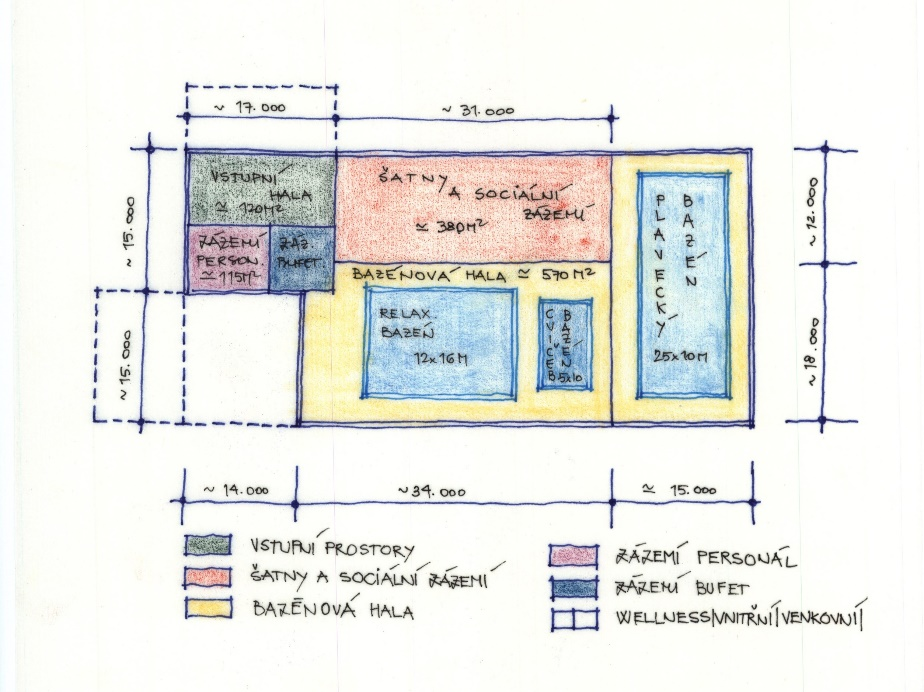 ~ 17.000
~ 31.000
VSTUPNÍ
HALA
≃ 170M²
ŠATNY
A SOCIÁLNÍ
ZÁZEMÍ
≃ 380M²
ZÁZEMÍ
PERSON.
≃ 115M²
ZÁZ.
BUFET.
BAZÉNOVÁ HALA ≃ 570M²
RELAX.
BAZÉN
12x16M
CVIČEB
BAZÉN
5x10
PLAVECKÝ
BAZÉN
25x10M
~ 15.000
~ 15.000
~ 12.000
~ 18.000
~ 14.000
~ 34.000
≃ 15.000
VSTUPNÍ PROSTORY
ŠATNY A SOCIÁLNÍ ZÁZEMÍ
BAZÉNOVÁ HALA
ZÁZEMÍ PERSONÁL
ZÁZEMÍ BUFET
WELLNESS|VNITŘNÍ|VENKOVNÍ|